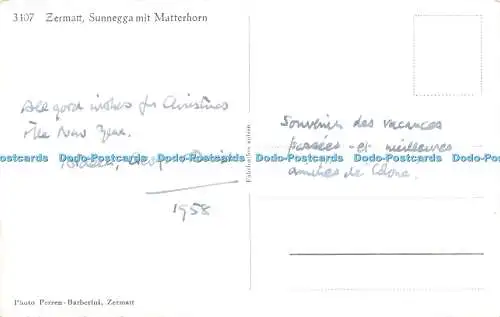 3107 Zermatt, Sunnegga mit Matterhorn
All good wishes for Christmas
& the New Year.
1958
Souvenirs des vacances
passées - et meilleures
amitiés de
Photo Perren-Barberini, Zermatt
Dodo-Postcards Dodo-Postcards Dodo-Postcards Dodo-Postcards Dodo-Postcards Dodo-Postcards